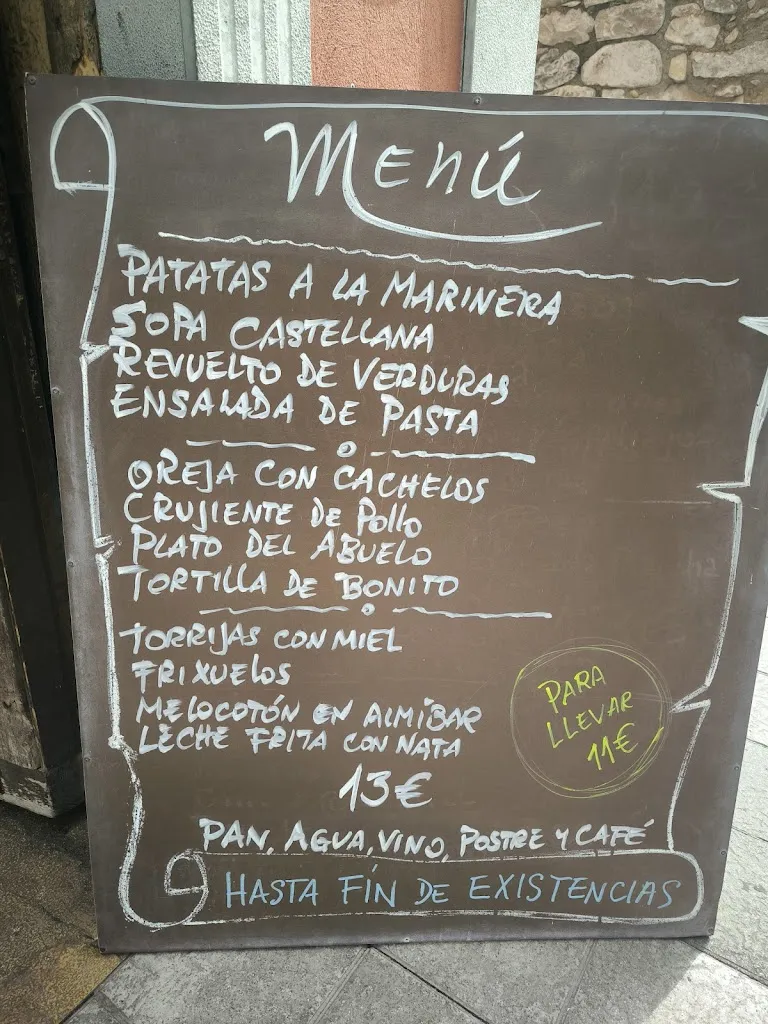 Menú
PATATAS A LA MARINERA
SOPA CASTELLANA
REVUELTO DE VERDURAS
ENSALADA DE PASTA
OREJA CON CACHELOS
CRUJIENTE DE POLLO
PLATO DEL ABUELO
TORTILLA DE BONITO
TORRIJAS CON MIEL
FRIXUELOS
MELOCOTÓN EN ALMIBAR
LECHE FRITA CON NATA
PARA
LLEVAR
11€
13€
PAN, AGUA, VINO, POSTRE Y CAFÉ
HASTA FÍN DE EXISTENCIAS